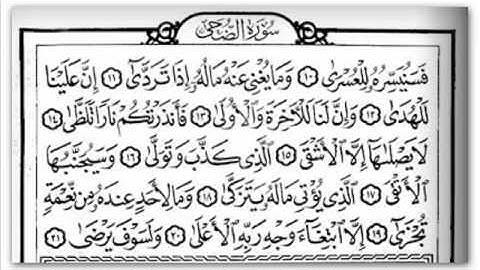 سُورَةُ الضُّحَى
فَسَنُيَسِّرُهُ لِلْعُسْرَىٰ ١٠ وَمَا يُغْنِي عَنْهُ مَالُهُ إِذَا تَرَدَّىٰ ١١ إِنَّ عَلَيْنَا
لَلْهُدَىٰ ١٢ وَإِنَّ لَنَا لَلْآخِرَةَ وَالْأُولَىٰ ١٣ فَأَنذَرْتُكُمْ نَارًا تَلَظَّىٰ ١٤
لَا يَصْلَاهَا إِلَّا الْأَشْقَى ١٥ الَّذِي كَذَّبَ وَتَوَلَّىٰ ١٦ وَسَيُجَنَّبُهَا
الْأَتْقَى ١٧ الَّذِي يُؤْتِي مَالَهُ يَتَزَكَّىٰ ١٨ وَمَا لِأَحَدٍ عِندَهُ مِن نِّعْمَةٍ
تُجْزَىٰ ١٩ إِلَّا ابْتِغَاءَ وَجْهِ رَبِّهِ الْأَعْلَىٰ ٢٠ وَلَسَوْفَ يَرْضَىٰ ٢١